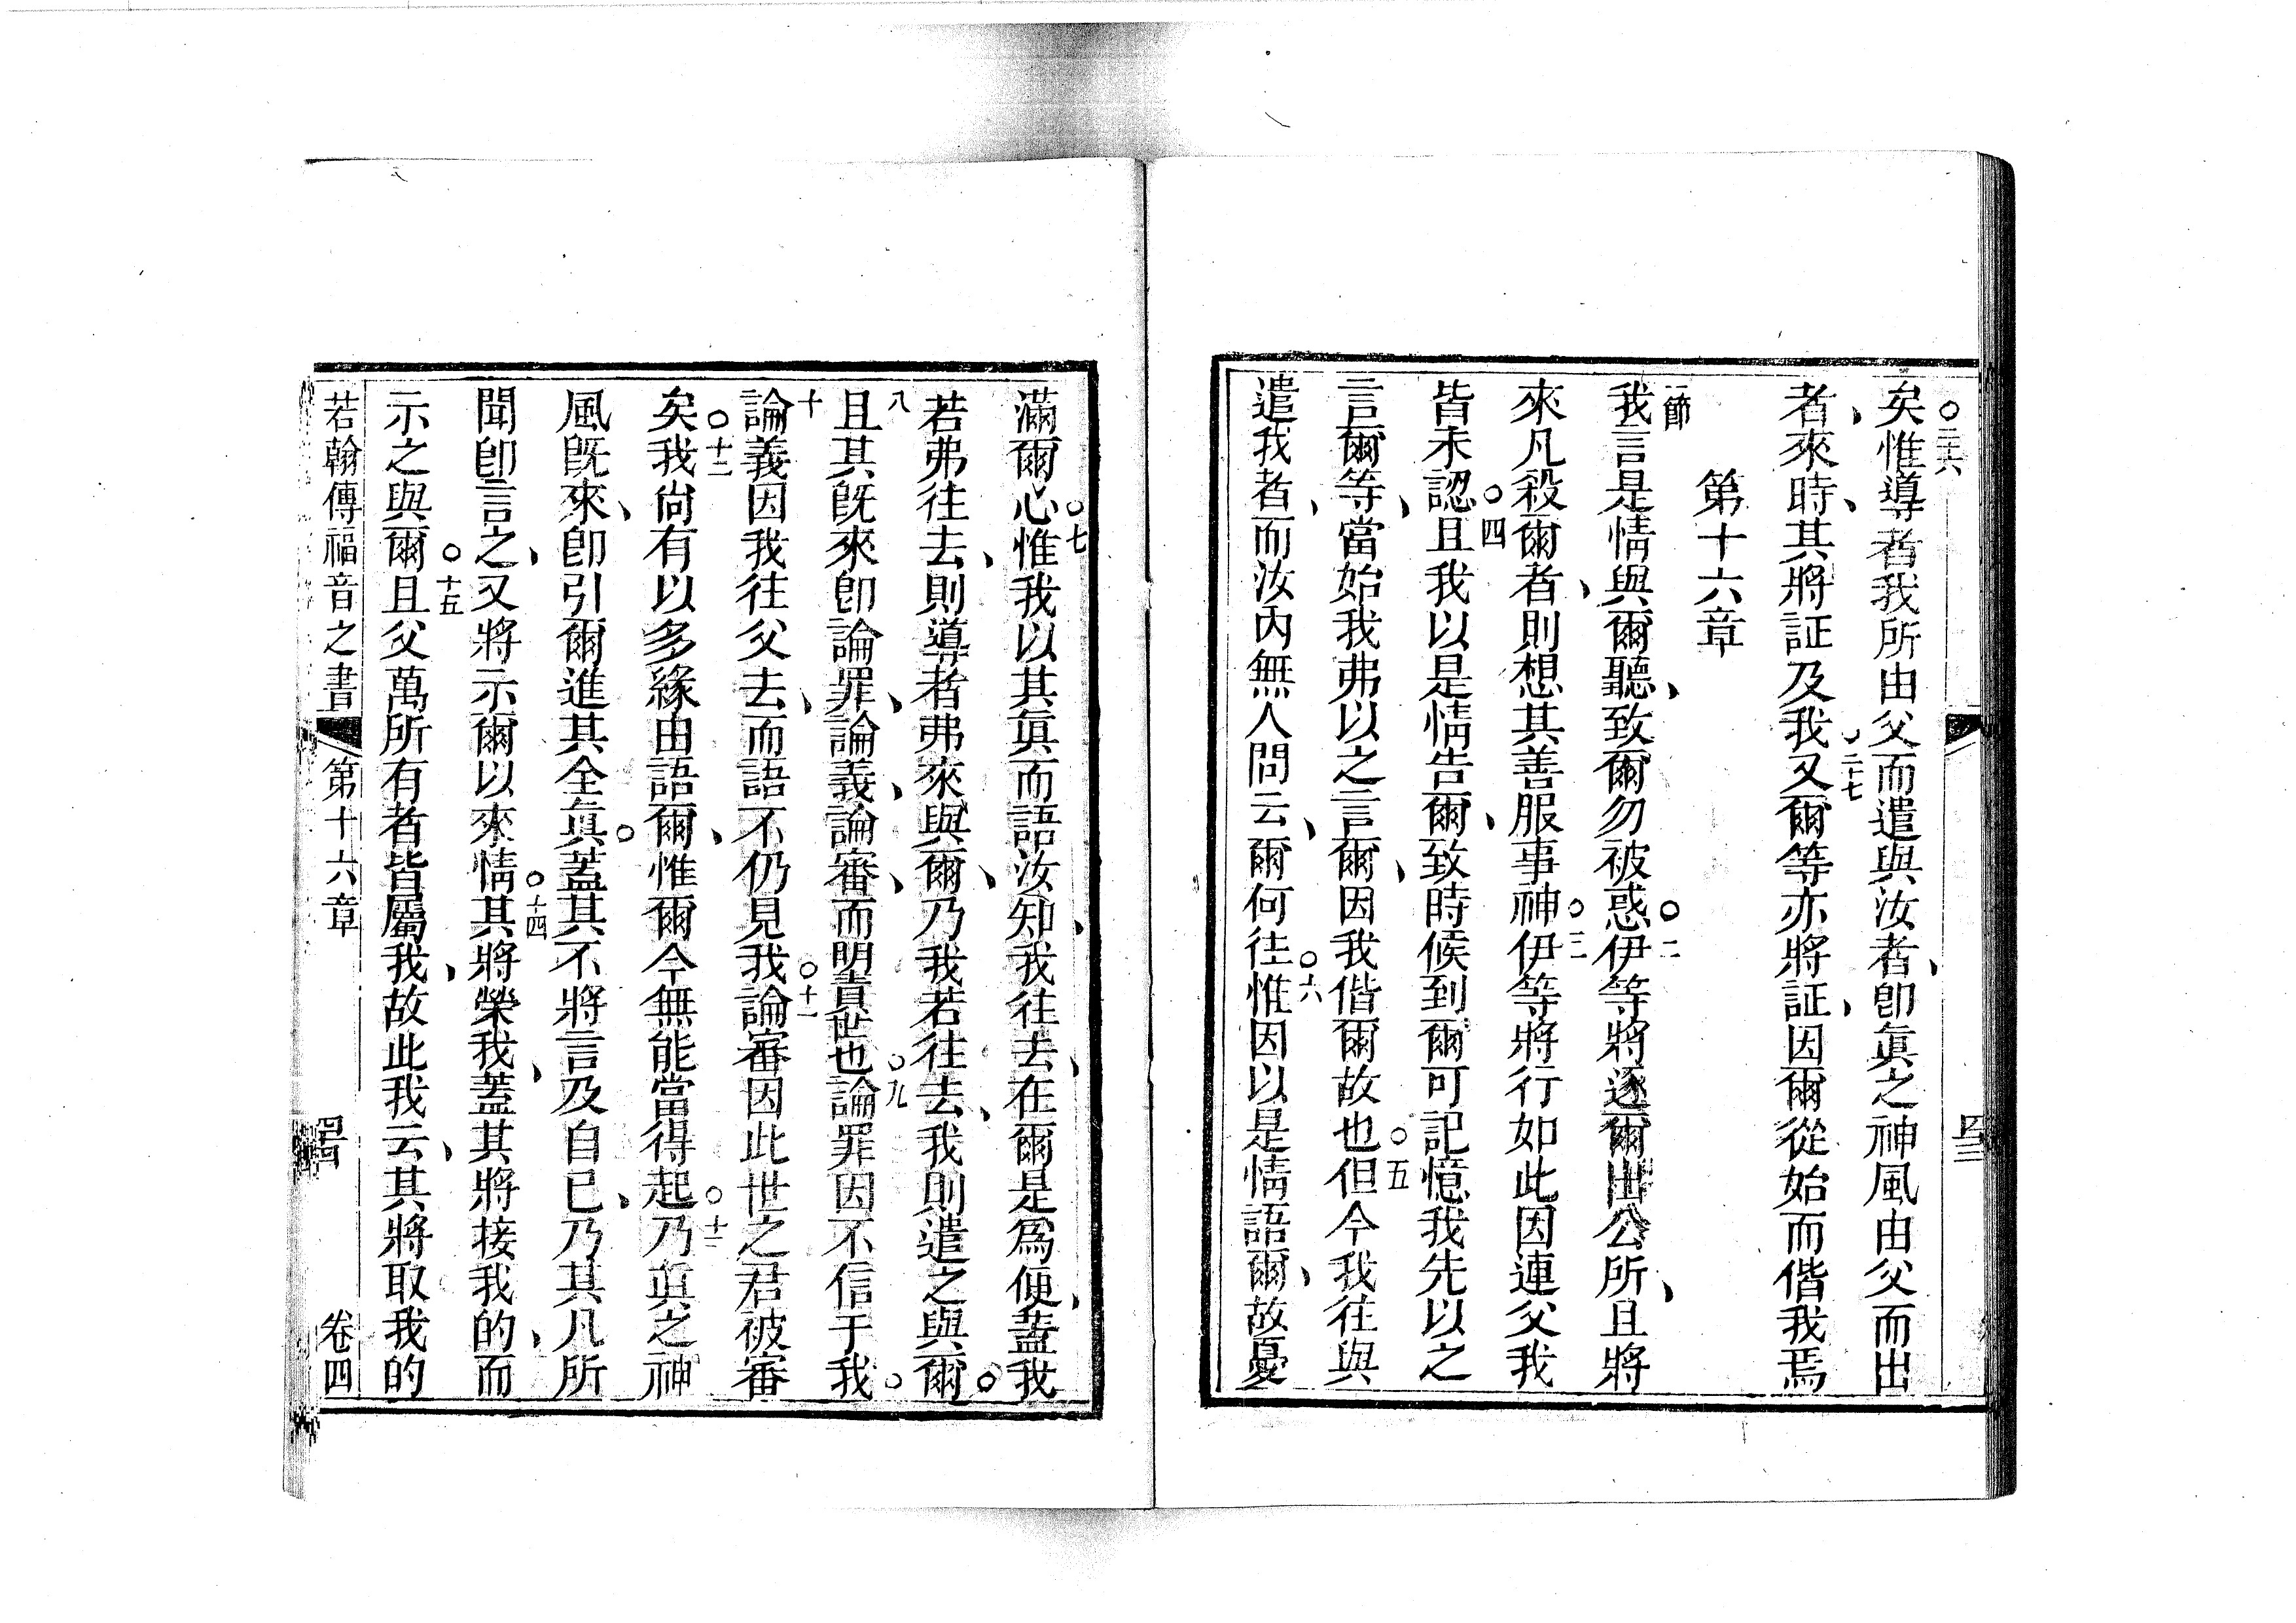 矣惟導者我所由父而遣與汝者、卽眞之神風由父而出
者、來時、其將証及我又爾等亦將証、因爾從始而偕我焉
第十六章
我言是情與爾聽、致爾勿被惑○伊等將逐爾出公所、且將
來凡殺爾者、則想其善服事神○伊等將行如此因連父我
皆未認○且我以是情告爾、致時候到爾可記憶我先以之
言爾等、當始我弗以之言爾、因我偕爾故也○但今我往與
遣我者、而汝內無人問云、爾何往○惟因以是情語爾、故憂
滿爾心○惟我以其眞而語汝知、我往去、在爾是爲便、蓋我
若弗往去、則導者弗來與爾、乃我若往去、我則遣之與爾○
且其旣來卽論罪、論義、論審、而明責世也○論罪因不信于我○
論義因我往父去、而語不仍見我○論審因此世之君被審
矣○我尙有以多緣由語爾、惟爾今無能當得起○乃眞之神
風旣來、卽引爾進其全眞○蓋其不將言及自己、乃其凡所
聞卽言之、又將示爾以來情○其將榮我、蓋其將接我的、而
示之與爾○且父萬所有者皆屬我、故此我云、其將取我的
若翰傳福音之書 第十六章 卷四